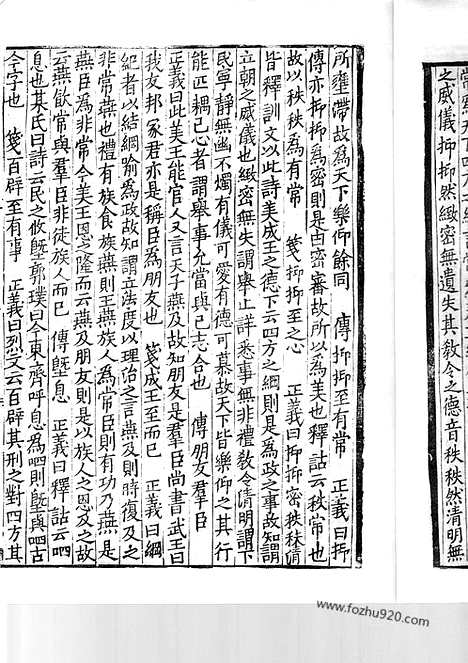 之威儀抑抑然緻密無遺失其敎令之德音秩秩然清明無
所壅滯故爲天下樂仰餘同　傳抑抑至有常　正義曰抑
傳亦抑抑爲密則是由密審故所以爲美也釋詁云秩常也
故以秩秩爲有常　箋抑抑至之心　正義曰抑抑密秩秩清
皆釋訓文以此詩美成王之德下云四方之綱則是爲政之事故知謂
立朝之威儀也緻密無失謂舉止詳悉事無非禮敎令清明謂下
民寧靜無幽不燭有儀可愛有德可慕故天下皆樂仰之其行
能匹耦己心者謂舉事允當與己志合也　傳朋友羣臣
正義曰此美王能官人又言天子燕及故知朋友是羣臣尚書武王曰
我友邦冢君亦是稱臣爲朋友也　箋成王至而已　正義曰綱
紀者以結網喻爲政故知謂立法度以理治之言燕及則時復及之
非常燕也禮有族食族燕則王燕族人爲常臣則有功乃燕是
燕臣爲非常今美王恩之隆而云燕及朋友則是以族人之恩及之故
云燕飲常與羣臣非徒族人而已　傳墍息　正義曰釋詁云呬
息也某氏曰詩云民之攸墍郭璞曰今東齊呼息爲呬則墍與呬古
今字也　箋百辟至有事　正義曰烈文云百辟其刑之對四方其
www.fozhu920.com